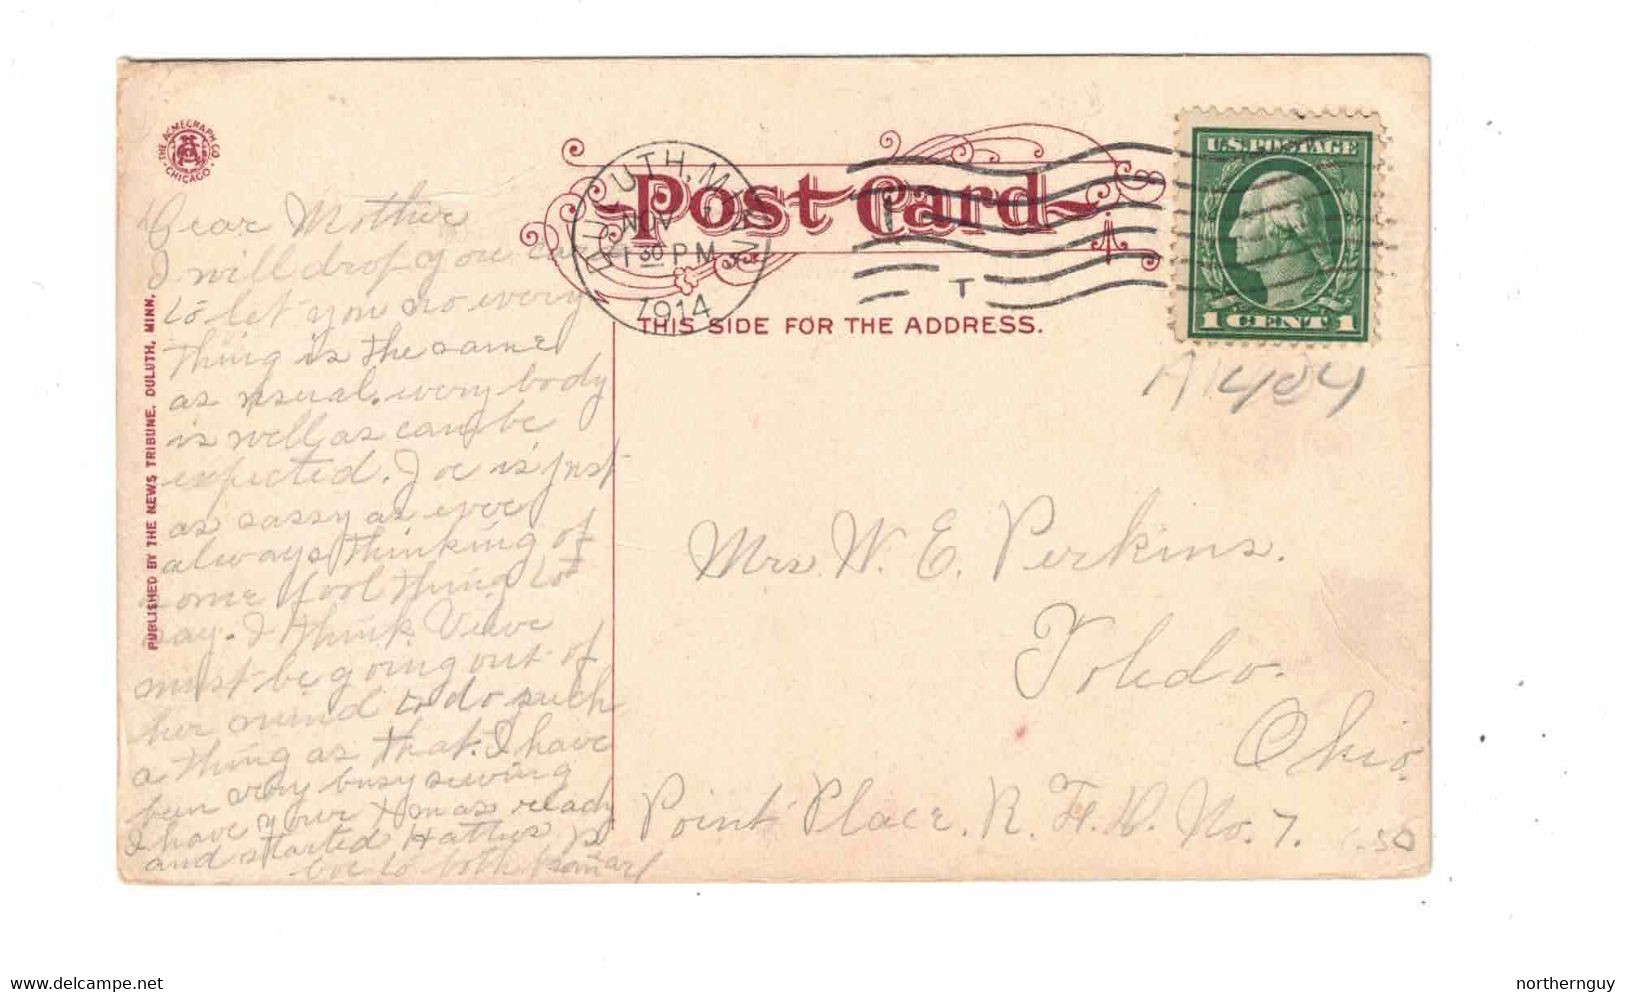 THE ACMEGRAPH CO. CHICAGO
PUBLISHED BY THE NEWS TRIBUNE, DULUTH, MINN.
Post Card
THIS SIDE FOR THE ADDRESS.
DULUTH, MINN
NOV
1 30 PM
1914
U.S. POSTAGE
1 CENT 1
A1484
Dear Mother
I will drop you
to let you no every
thing is the same
as usual. every body
is well as can be
expected. Joe is just
as sassy as ever
always thinking of
some fool thing to
say. I think
must be going out of
her mind to do such
a thing as that. I have
been very busy sewing
I have your Xmas ready
and started Hatties
love to both from
Mrs. W. E. Perkins.
Toledo.
Ohio.
Point Place. R. F. D. No. 7.
delcampe.net
northernguy